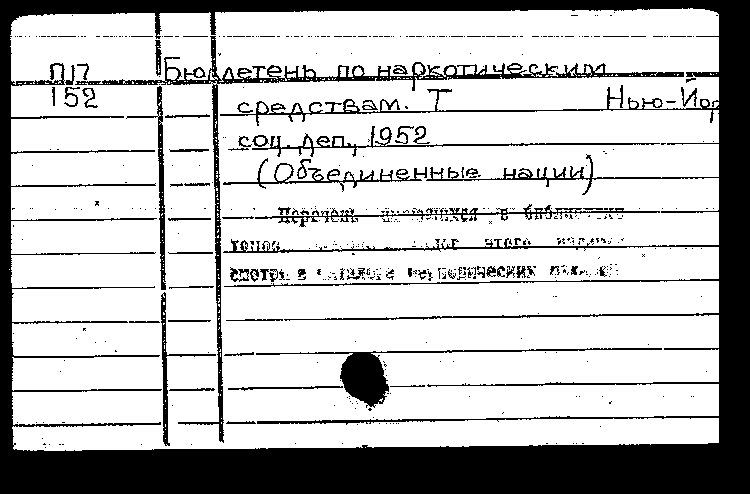 П17 Бюллетень по наркотическим
152 средствам. Т Нью-Йор
соц. деп., 1952
(Объединенные нации)
Перечень имеющихся в библиотеке
томов этого
смотри в каталоге периодических изданий